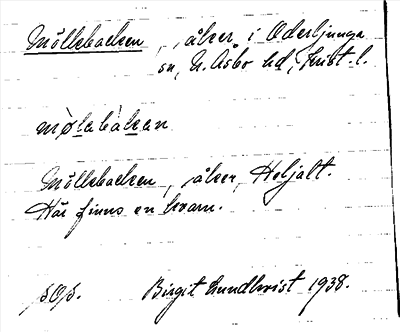 Möllebacken, åker i Oderljunga
sn, N. Åsbo hd, Krist. l.
mø̀labàkan
Möllebacken, åker, Heljalt.
Här finns en kvarn.
Birgit Lundkvist 1938.